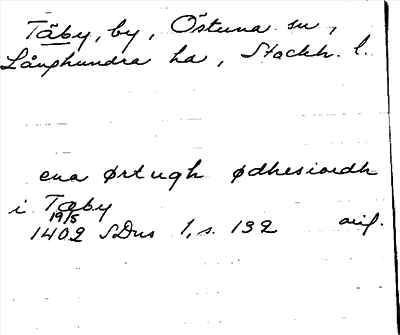 Täby, by, Östuna sn,
Långhundra hd, Stockh. l.
ena ørtugh ødhesiordh
i Taby
19/5
1402 SDns 1, s. 132 avf.